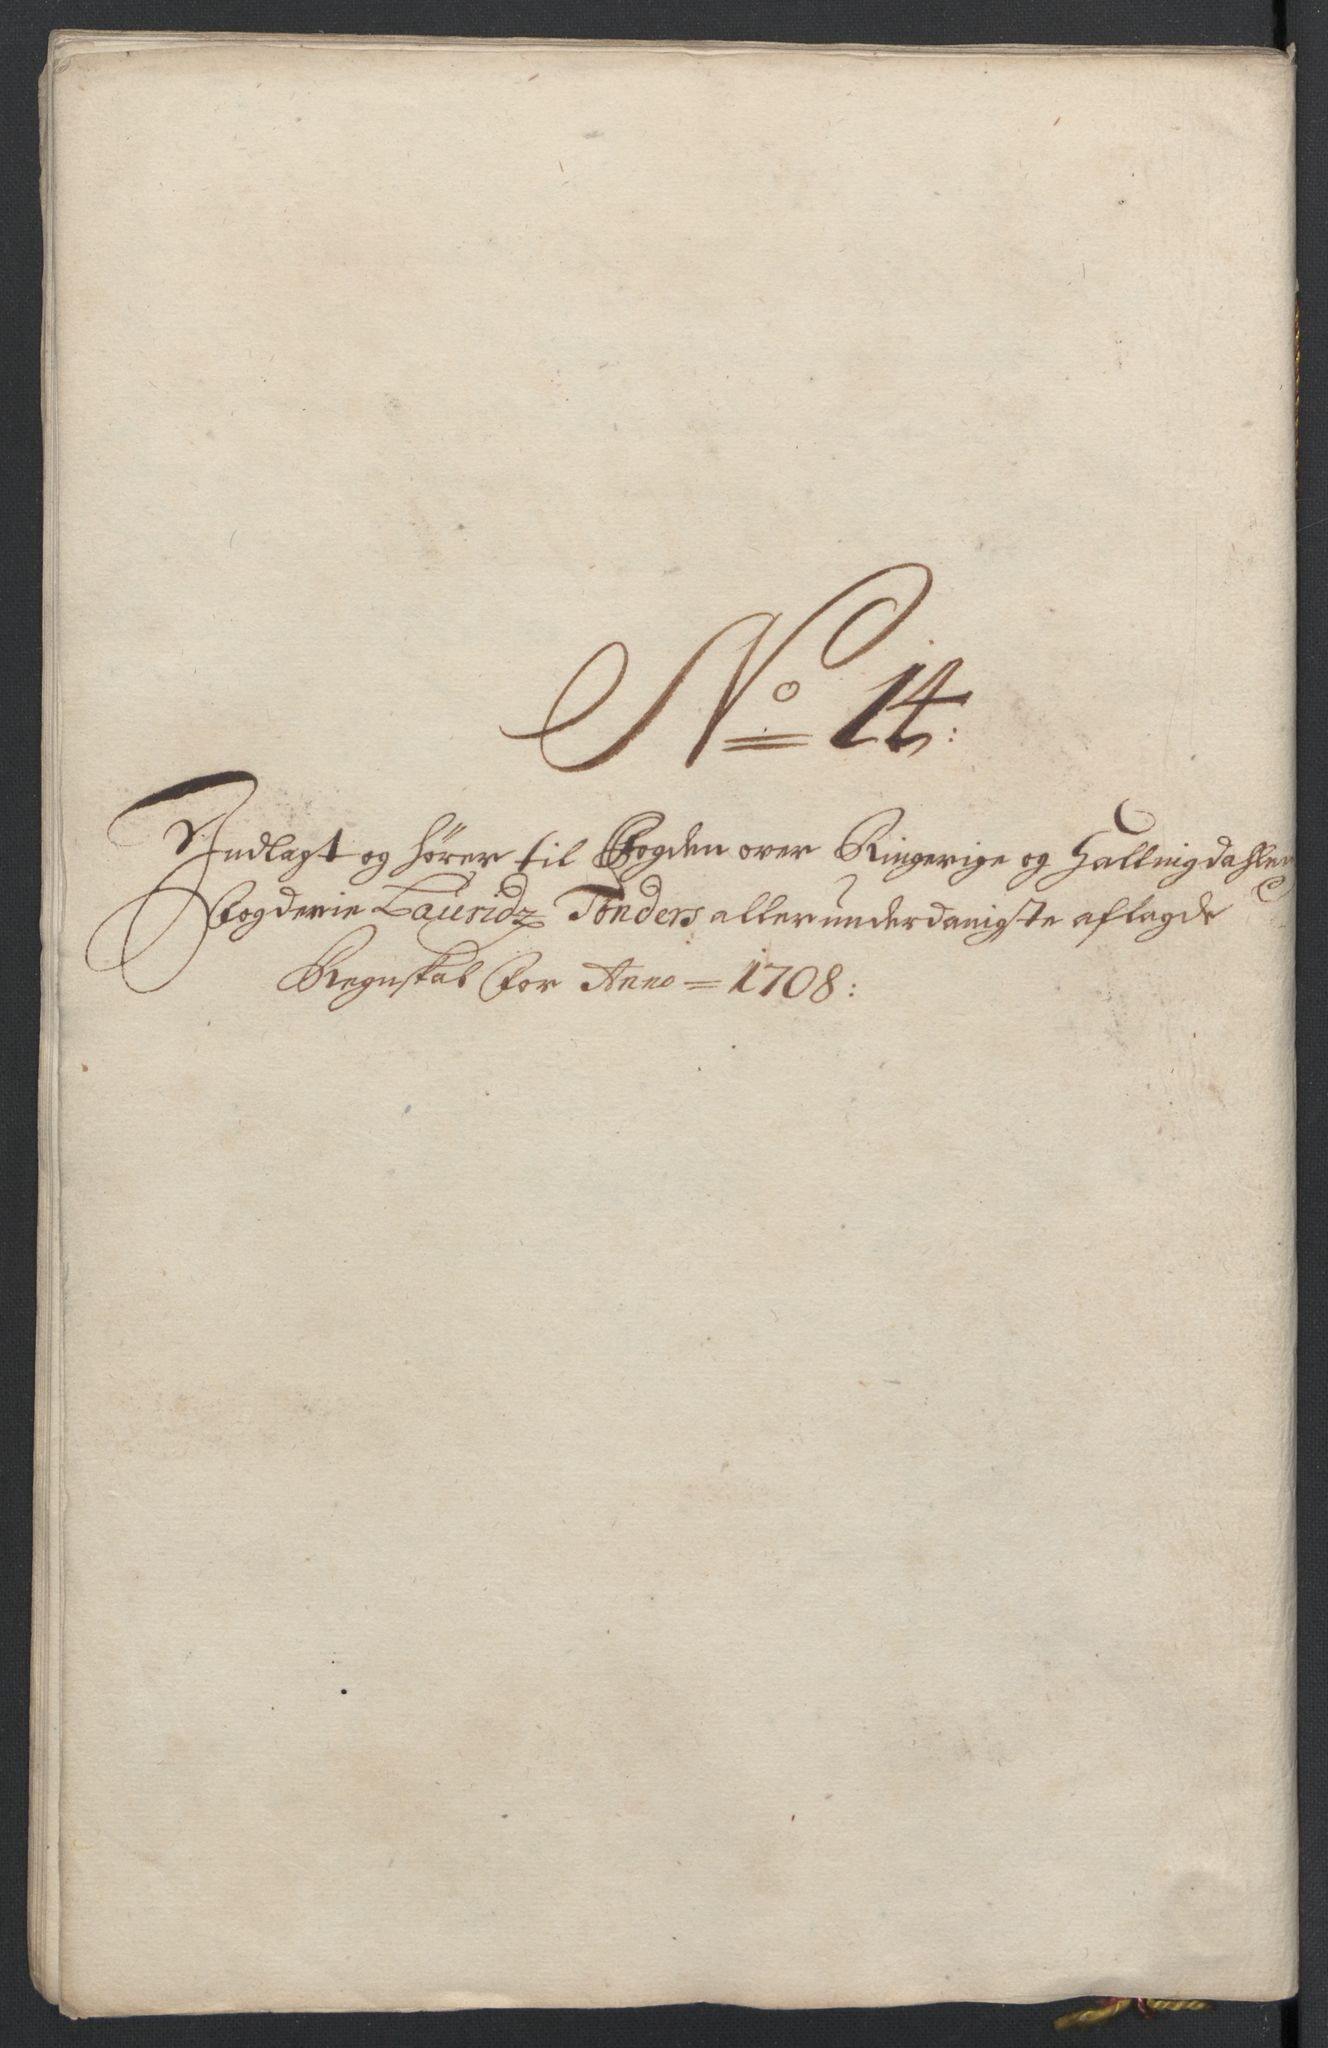 No 14:
Indlagt og hører til Fogden over Ringerige og Hallingdahlens
Fogderie Lauridz Tønders allerunderdanigste aflagde
Regnskab for Anno = 1708: